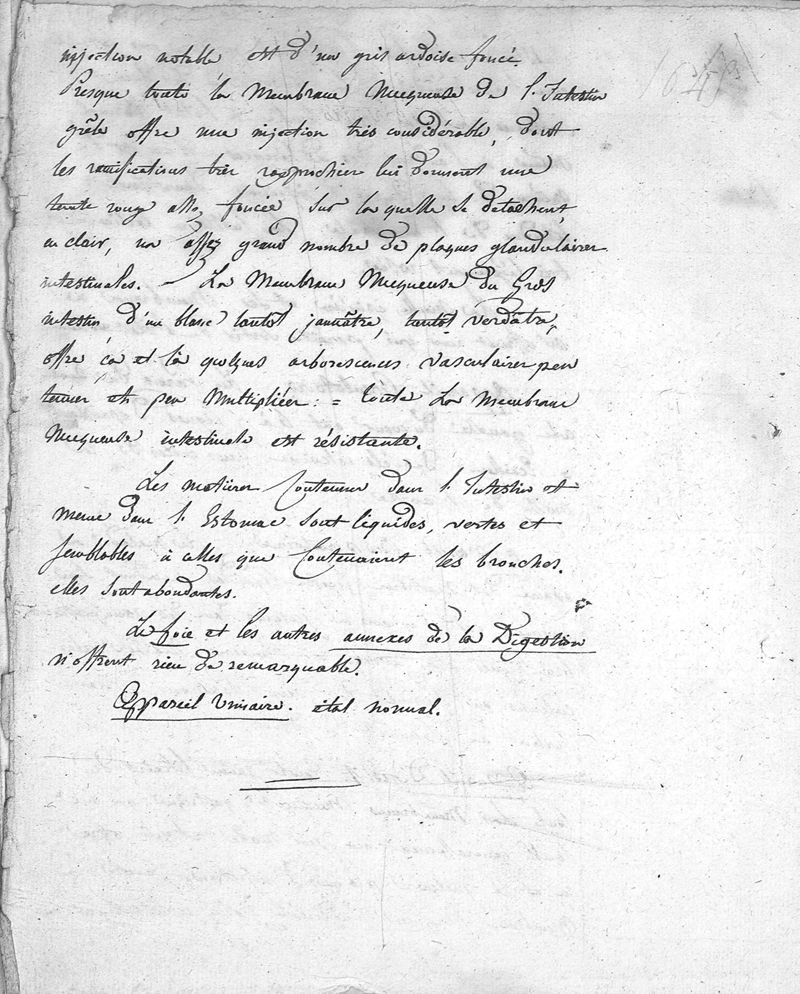 injection notable est d'un gris ardoise foncé
Presque toute la Membrane Muqueuse de l'Intestin
grêle offre une injection très considérable, dont
les ramifications très rapprochées lui donnent une
teinte rouge assez foncée sur laquelle se détachent,
en clair, un assez grand nombre de plaques glandulaires
intestinales. - La Membrane Muqueuse du Gros
intestin d'un blanc tantôt jaunâtre, tantôt verdâtre,
offre ça et là quelques arborescences vasculaires peu
tenues et peu Multipliées : = toute La Membrane
Muqueuse intestinale est résistante.
Les matières Contenues dans l'Intestin et
meme dans l'Estomac sont liquides, vertes et
semblables à celles que Contenaient les bronches.
elles sont abondantes.
Le foie et les autres annexes de la Digestion
n'offrent rien de remarquable.
Appareil Urinaire. état normal.